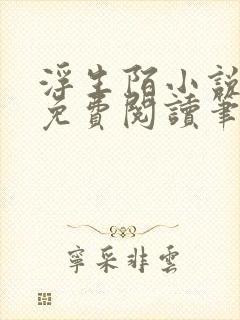 浮生陌小說
免費閱讀筆
寧采非雲